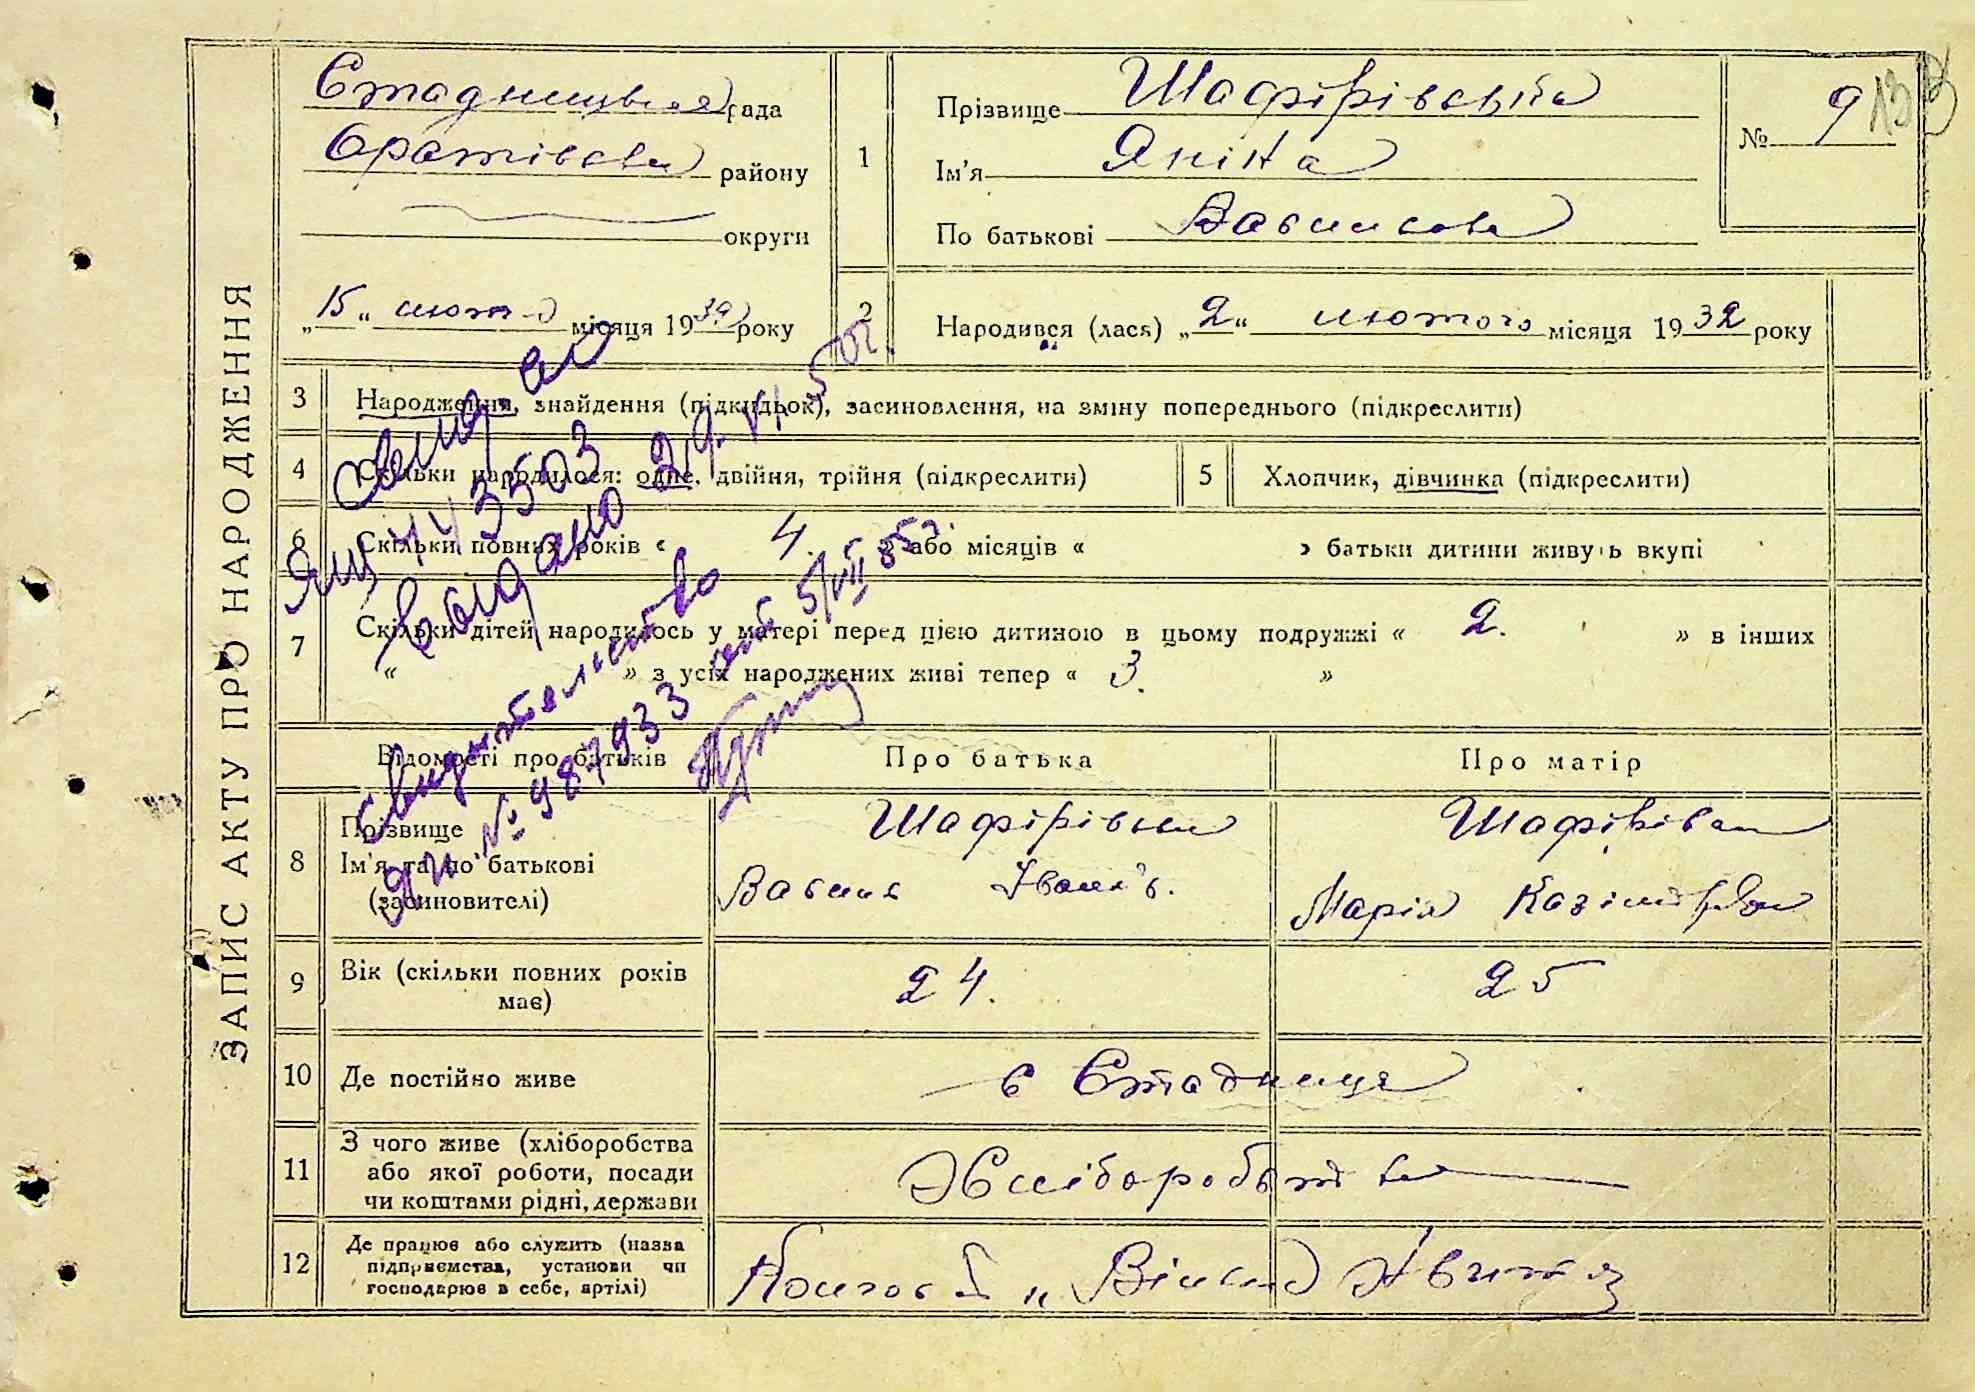 ЗАПИС АКТУ ПРО НАРОДЖЕННЯ
Стадницькая рада
Оратівськ району
округи
„15“ лютого місяця 1932 року
1
Прізвище Шафірівська
Ім'я Яніна
По батькові Васильова
№ 9
133
2
Народився (лася) „2“ лютого місяця 1932 року
3 Народження, знайдення (підкидьок), засиновлення, на зміну попереднього (підкреслити)
4 Скільки народилося: одне, двійня, трійня (підкреслити)
5 Хлопчик, дівчинка (підкреслити)
6 Скільки повних років « 4. » або місяців « » батьки дитини живуть вкупі
7 Скільки дітей народилось у матері перед цією дитиною в цьому подружжі « 2. » в інших
« » з усіх народжених живі тепер « 3. »
Свид. ал
ЯЦ 443503
выдано 29. VI. 50 г.
Свидетельство
ЯИ № 987933 от 5/VII 85 г.
Відомості про батьків
Про батька
Про матір
8 Прізвище
Ім'я та по батькові
(засиновителі)
Шафірівськ
Василь Іванів.
Шафірівськ
Марія Казімірівн
9 Вік (скільки повних років має)
24.
25
10 Де постійно живе
с Стадниця
11 З чого живе (хліборобства
або якої роботи, посади
чи коштами рідні, держави
Хліборобства
12 Де працює або служить (назва
підприємства, установи чи
господарює в себе, артілі)
Колгосп „Вільне Життя